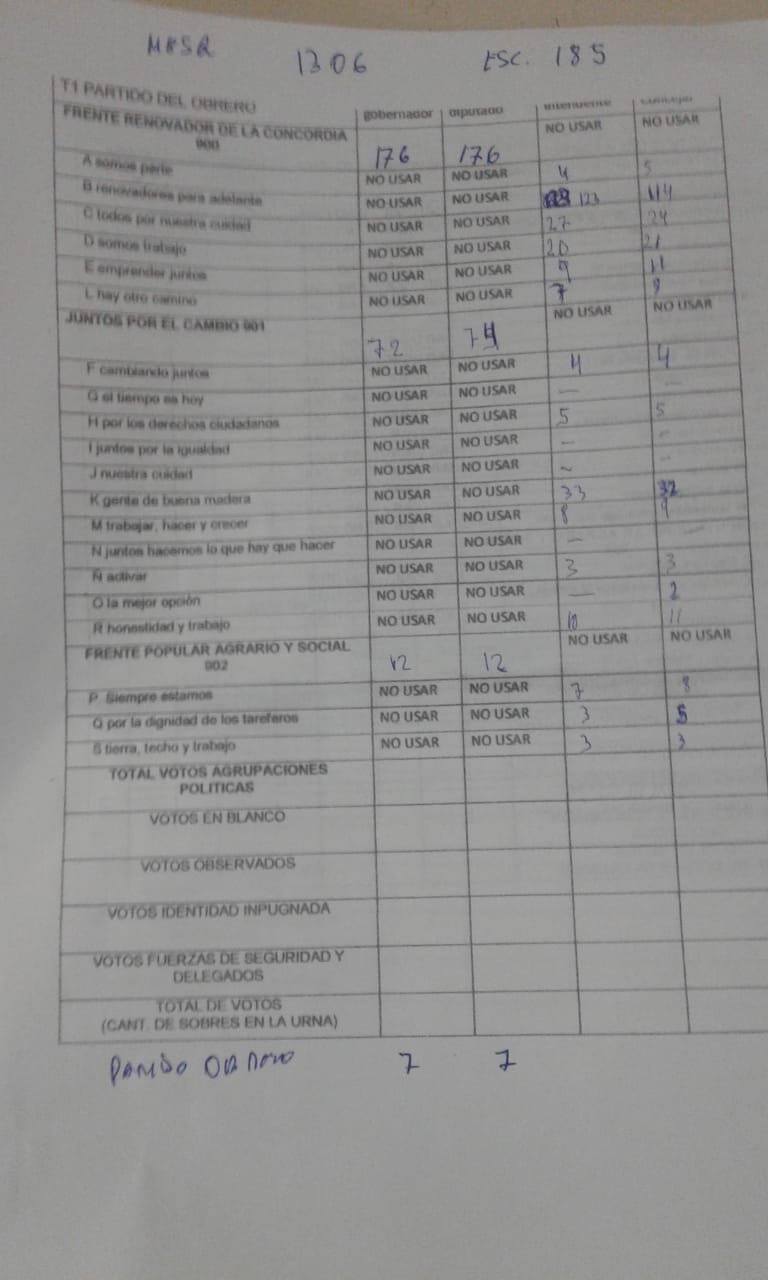 MESA 1306 ESC. 185
T1 PARTIDO DEL OBRERO gobernador diputado intendente concejo
FRENTE RENOVADOR DE LA CONCORDIA NO USAR NO USAR
900 176 176
A somos parte NO USAR NO USAR 4 5
B renovadores para adelante NO USAR NO USAR 123 114
C todos por nuestra cuidad NO USAR NO USAR 27 24
D somos trabajo NO USAR NO USAR 20 21
E emprender juntos NO USAR NO USAR 9 11
L hay otro camino NO USAR NO USAR 7 9
JUNTOS POR EL CAMBIO 901 72 74 NO USAR NO USAR
F cambiando juntos NO USAR NO USAR 4 4
G el tiempo es hoy NO USAR NO USAR — —
H por los derechos ciudadanos NO USAR NO USAR 5 5
I juntos por la igualdad NO USAR NO USAR — —
J nuestra cuidad NO USAR NO USAR ~ —
K gente de buena madera NO USAR NO USAR 33 32
M trabajar, hacer y crecer NO USAR NO USAR 8 9
N juntos hacemos lo que hay que hacer NO USAR NO USAR — —
Ñ activar NO USAR NO USAR 3 3
O la mejor opción NO USAR NO USAR — 2
R honestidad y trabajo NO USAR NO USAR 10 11
FRENTE POPULAR AGRARIO Y SOCIAL NO USAR NO USAR
902 12 12
P Siempre estamos NO USAR NO USAR 7 8
Q por la dignidad de los tareferos NO USAR NO USAR 3
S tierra, techo y trabajo NO USAR NO USAR 3 3
TOTAL VOTOS AGRUPACIONES
POLITICAS
VOTOS EN BLANCO
VOTOS OBSERVADOS
VOTOS IDENTIDAD INPUGNADA
VOTOS FUERZAS DE SEGURIDAD Y
DELEGADOS
TOTAL DE VOTOS
(CANT. DE SOBRES EN LA URNA)
PARTIDO OBRERO 7 7